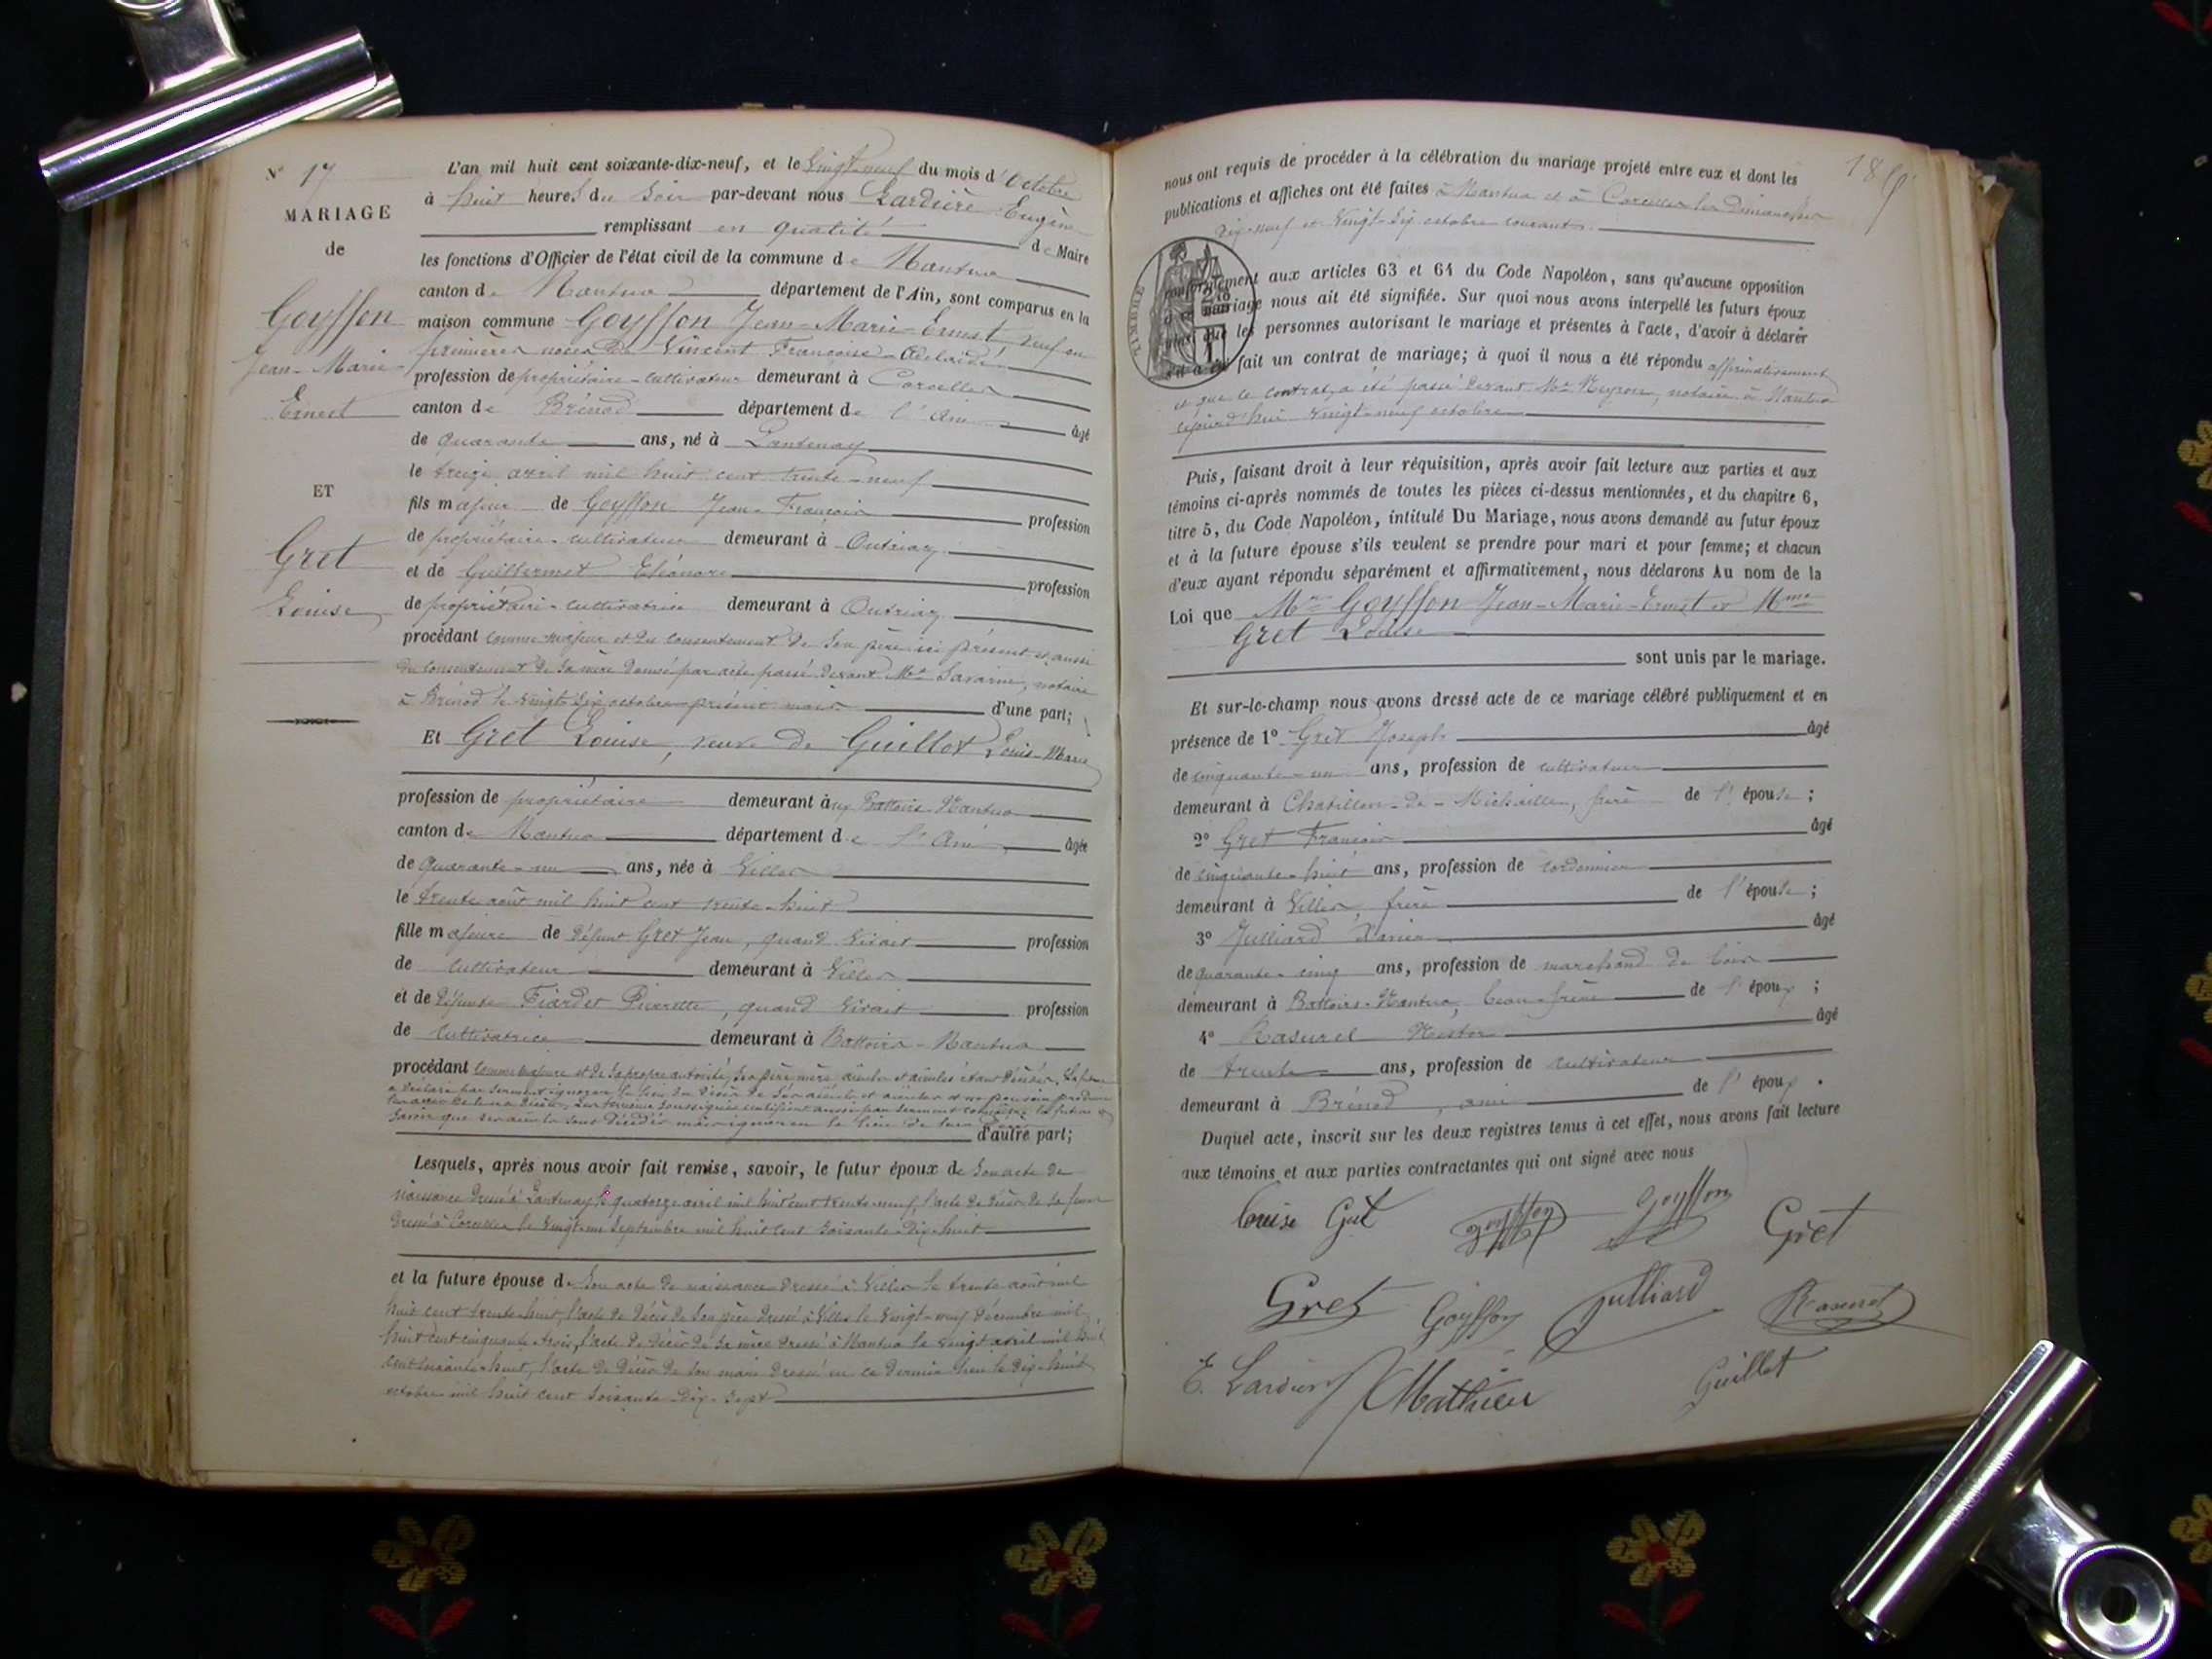 N° 17
MARIAGE
de
Goyffon
Jean-Marie-
Ernest
ET
Gret
Louise
L'an mil huit cent soixante-dix-neuf, et le vingt-neuf du mois d'octobre
à huit heures du soir par-devant nous Lardière Eugène
remplissant en qualité de Maire
les fonctions d'Officier de l'état civil de la commune de Nantua
canton de Nantua département de l'Ain, sont comparus en la
maison commune Goyffon Jean-Marie-Ernest veuf en
premières noces de Vincent Françoise-Adelaïde
profession de propriétaire-cultivateur demeurant à Corcelles
canton de Brénod département de l'Ain âgé
de quarante ans, né à Lantenay
le treize avril mil huit cent trente-neuf
fils majeur de Goyffon Jean-François profession
de propriétaire-cultivateur demeurant à Outriaz
et de Guillermet Eléonore profession
de propriétaire-cultivatrice demeurant à Outriaz
procédant comme majeur et du consentement de son père ici présent et aussi
du consentement de sa mère donné par acte passé devant Me Savarin, notaire
à Brénod le vingt-six octobre présent mois d'une part;
Et Gret Louise, veuve de Guillot Louis-Marie
profession de propriétaire demeurant aux Battoirs-Nantua
canton de Nantua département de l'Ain âgée
de quarante-un ans, née à Villes
le trente août mil huit cent trente-huit
fille majeure de défunt Gret Jean, quand vivait profession
de cultivateur demeurant à Villes
et de défunte Fiardet Pierrette, quand vivait profession
de cultivatrice demeurant à Battoirs-Nantua
procédant comme majeure et de sa propre autorité, ses père, mère, aïeuls et aïeules étant décédés. La future
a déclaré par serment ignorer le lieu du décès de ses aïeuls et aïeules et ne pouvoir produire
les actes de leur décès. Les témoins soussignés certifient aussi par serment
savoir que ses aïeuls sont décédés mais ignorer le lieu de leur décès
d'autre part;
Lesquels, après nous avoir fait remise, savoir, le futur époux de son acte de
naissance dressé à Lantenay le quatorze avril mil huit cent trente-neuf, l'acte de décès de sa femme
dressé à Corcelles le vingt-un septembre mil huit cent soixante-dix-huit
et la future épouse de son acte de naissance dressé à Villes le trente août mil
huit cent trente-huit, l'acte de décès de son père dressé à Villes le vingt-neuf décembre mil
huit cent cinquante-trois, l'acte de décès de sa mère dressé à Nantua le vingt avril mil huit
cent soixante-huit, l'acte de décès de son mari dressé en ce dernier lieu le dix-huit
octobre mil huit cent soixante-dix-sept
nous ont requis de procéder à la célébration du mariage projeté entre eux et dont les
publications et affiches ont été faites à Nantua et à Corcelles les dimanches
dix-neuf et vingt-six octobre courant
TIMBRE
conformément aux articles 63 et 64 du Code Napoléon, sans qu'aucune opposition
à ce mariage nous ait été signifiée. Sur quoi nous avons interpellé les futurs époux
ainsi que les personnes autorisant le mariage et présentes à l'acte, d'avoir à déclarer
s'il a été fait un contrat de mariage; à quoi il nous a été répondu affirmativement
et que ce contrat a été passé devant Me Neyron, notaire à Nantua
cejourd'hui vingt-neuf octobre
Puis, faisant droit à leur réquisition, après avoir fait lecture aux parties et aux
témoins ci-après nommés de toutes les pièces ci-dessus mentionnées, et du chapitre 6,
titre 5, du Code Napoléon, intitulé Du Mariage, nous avons demandé au futur époux
et à la future épouse s'ils veulent se prendre pour mari et pour femme; et chacun
d'eux ayant répondu séparément et affirmativement, nous déclarons Au nom de la
Loi que Mr Goyffon Jean-Marie-Ernest et Mme
Gret Louise
sont unis par le mariage.
Et sur-le-champ nous avons dressé acte de ce mariage célébré publiquement et en
présence de 1° Gret Joseph âgé
de cinquante-un ans, profession de cultivateur
demeurant à Chatillon-de-Michaille, frère de l'épouse;
2° Gret François âgé
de cinquante-huit ans, profession de cordonnier
demeurant à Villes, frère de l'épouse;
3° Julliard Xavier âgé
de quarante-cinq ans, profession de marchand de bois
demeurant à Battoirs-Nantua, beau-frère de l'époux;
4° Rasurel Nestor âgé
de trente ans, profession de cultivateur
demeurant à Brénod, ami de l'époux.
Duquel acte, inscrit sur les deux registres tenus à cet effet, nous avons fait lecture
aux témoins et aux parties contractantes qui ont signé avec nous
Louise Gret Goyffon Goyffon Gret
Gret Goyffon Julliard Rasurel
E. Lardière Mathieu Guillot